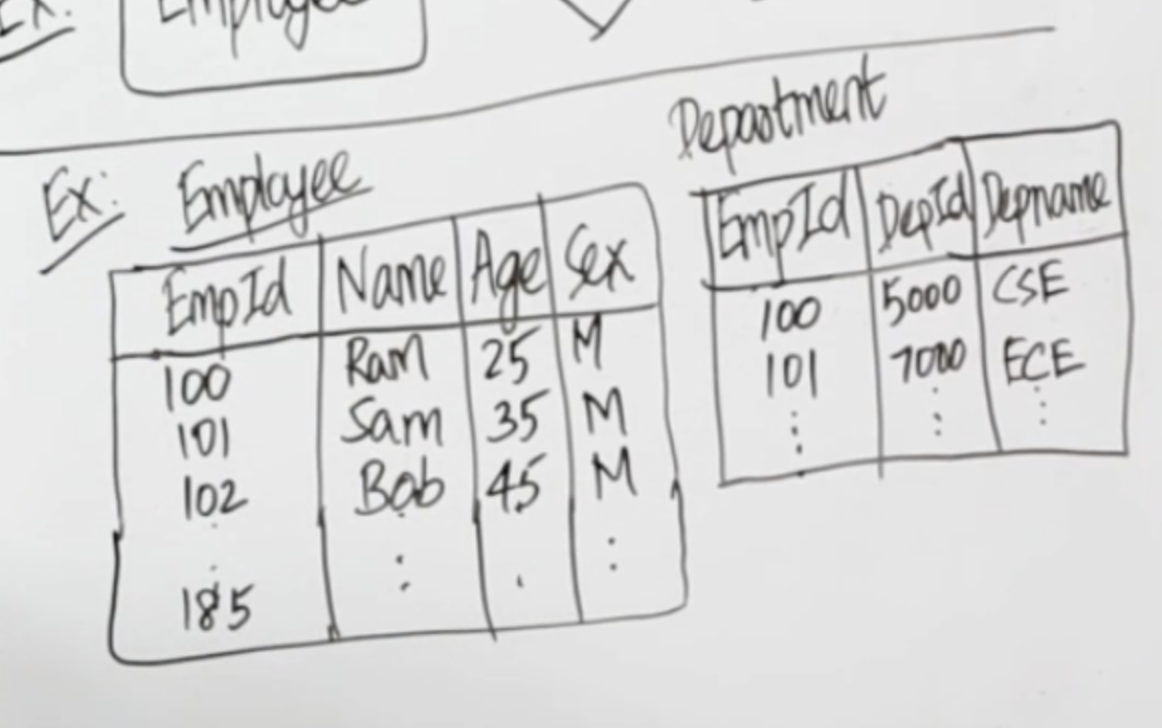 Ex:
Employee
Ex: Employee
EmpId Name Age Sex
100 Ram 25 M
101 Sam 35 M
102 Bob 45 M
185
Department
EmpId DepId Depname
100 5000 CSE
101 7000 ECE